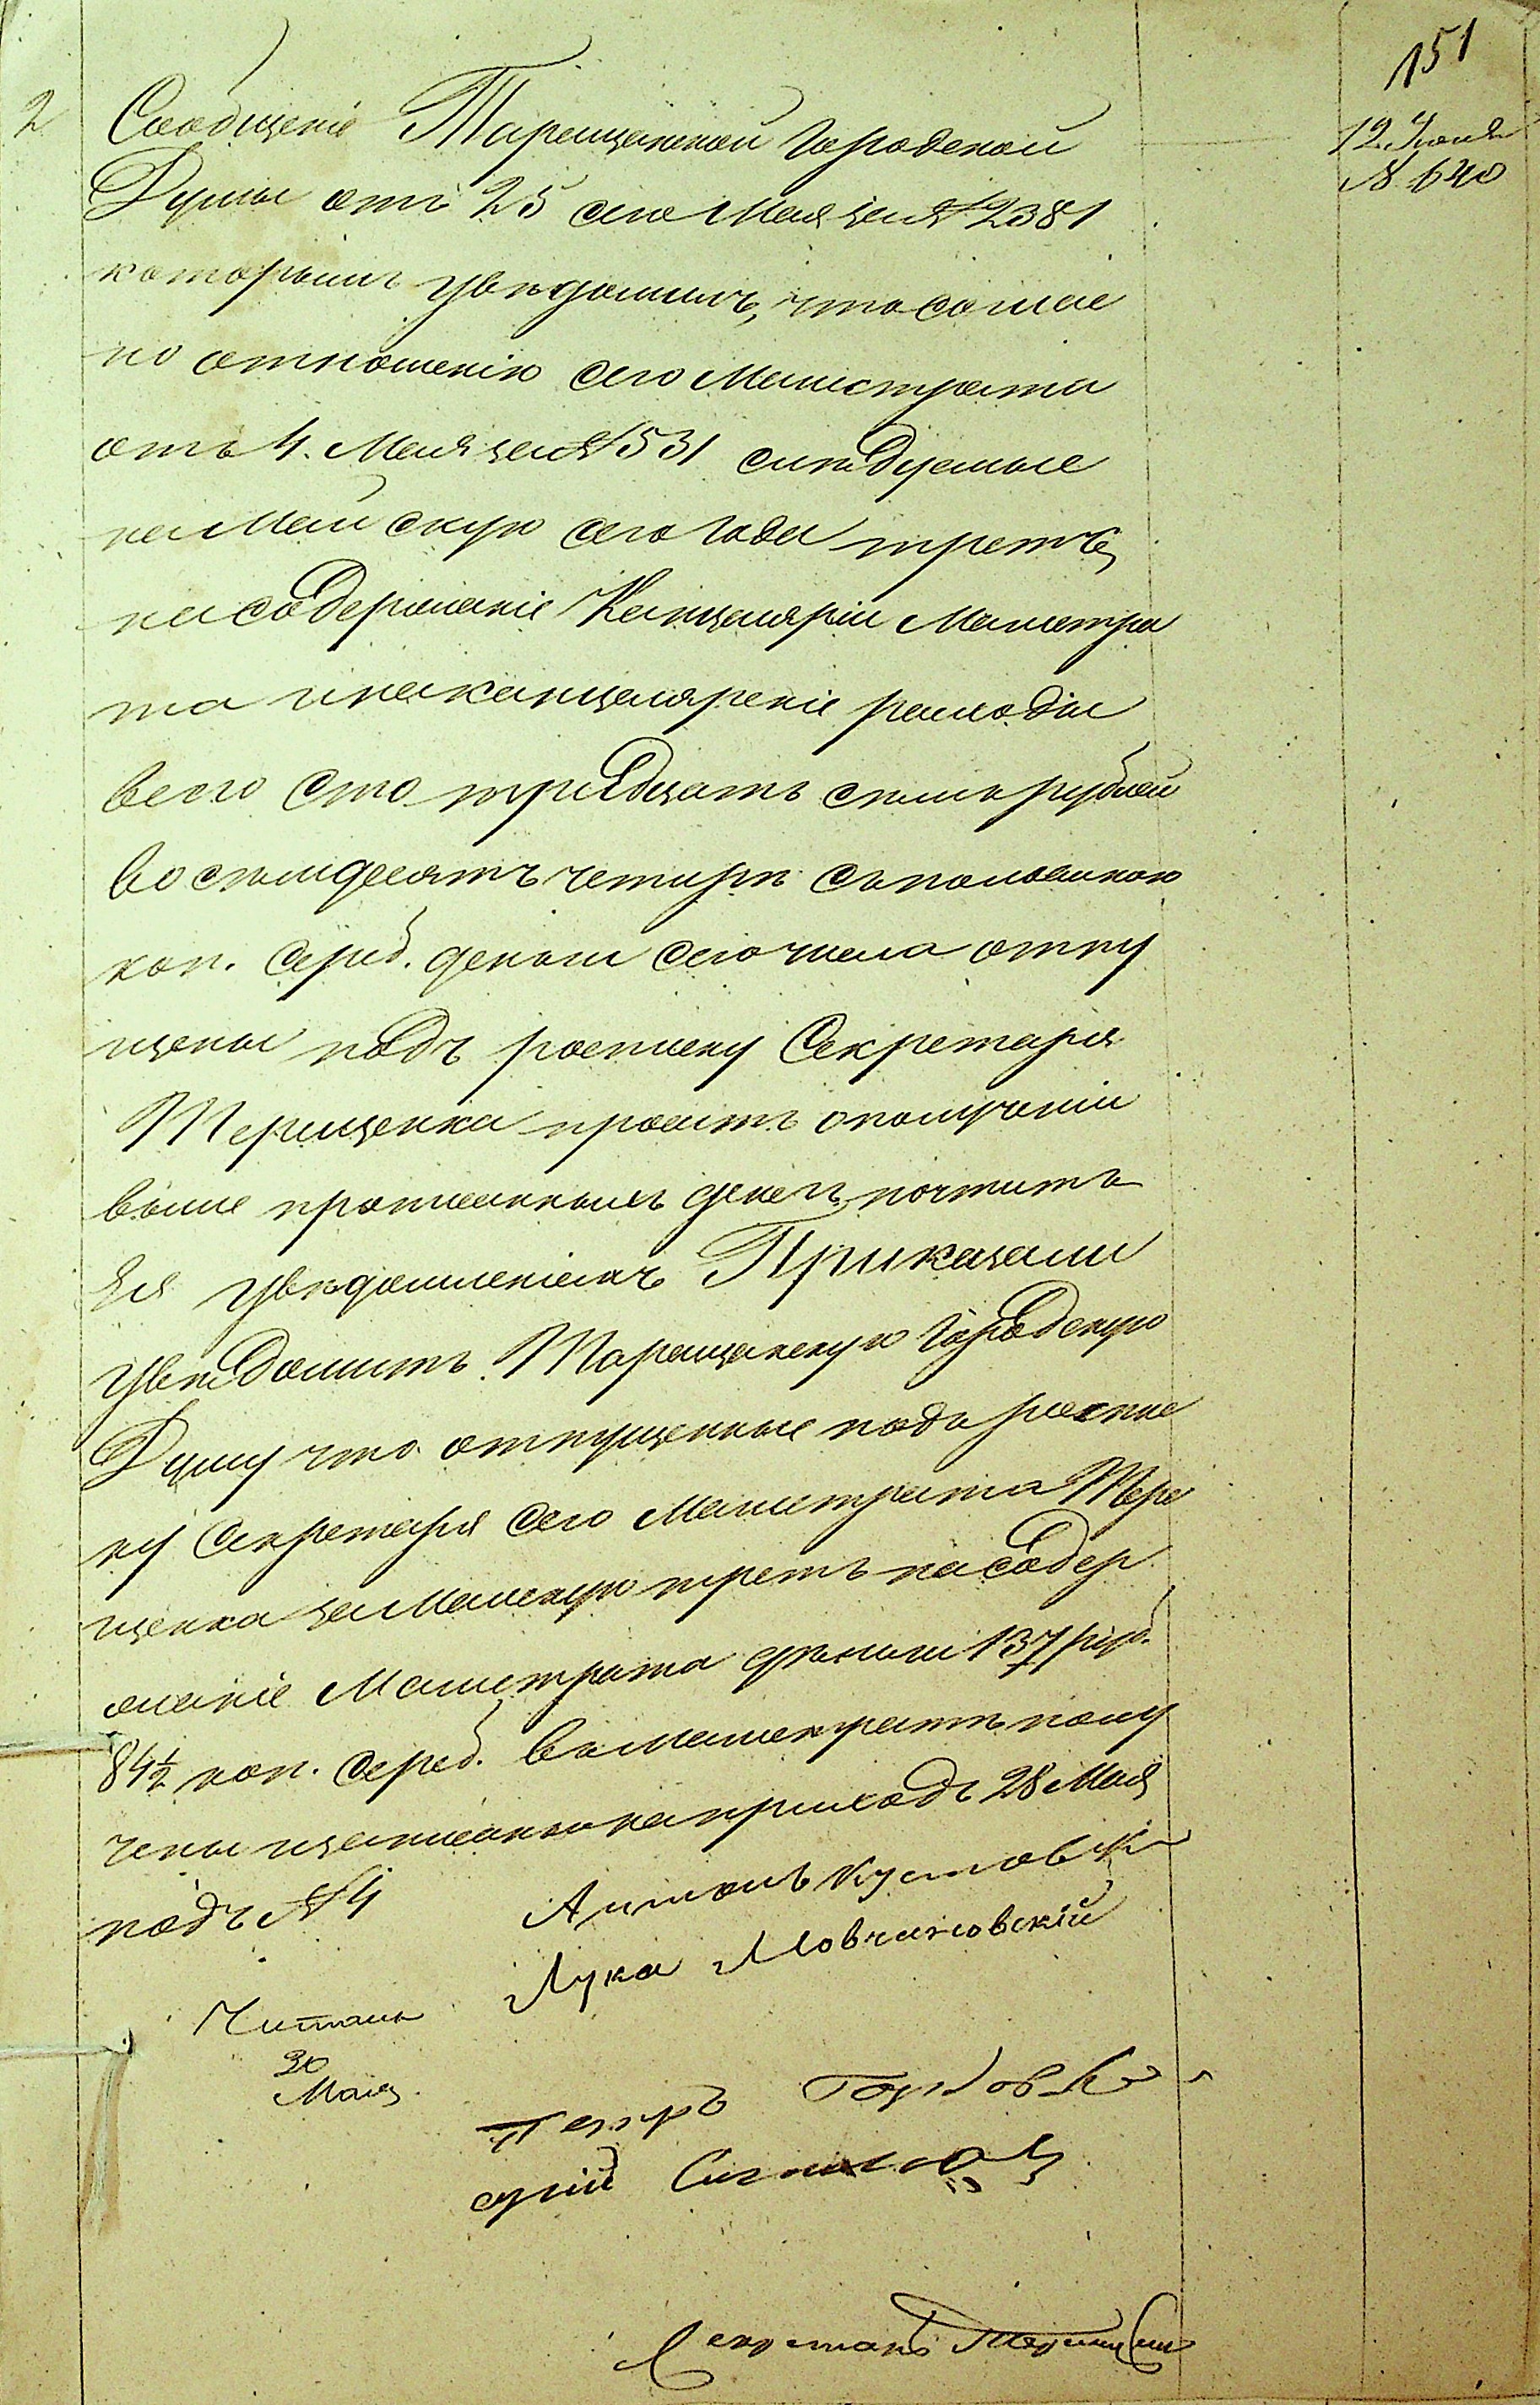 151
12 Июня
№ 640
2
Сообщеніе Таращанской Городской
Думы отъ 25 сего Мая за № 2381
которымъ увѣдомилъ, что соглас
но отношенію сего Магистрата
отъ 4. Мая за № 531 слѣдуемые
на Майскую сего года треть
на содержаніе Канцеляріи Магистра
та и на канцелярскіе расходы
всего сто тридцать семь рублей
восемдесятъ четыре съ половиною
коп. сереб. деньги сего числа отпу
щены подъ росписку Секретаря
Терещенка проситъ о полученіи
выше прописанныхъ денегъ почтить
ея увѣдомленіемъ Приказали
увѣдомить Таращанскую Городскую
Думу что отпущенные подъ роспис
ку Секретаря сего Магистрата Тере
щенка за Майскую треть на содер
жаніе Магистрата деньги 137 руб.
84½ коп. сереб. въ Магистратъ полу
чены и записаны на приходъ 28 Мая
подъ № 4
Антонъ Кустовск
Лука Мовчановскій
Читалъ
30
Мая
Петръ
Секретарь